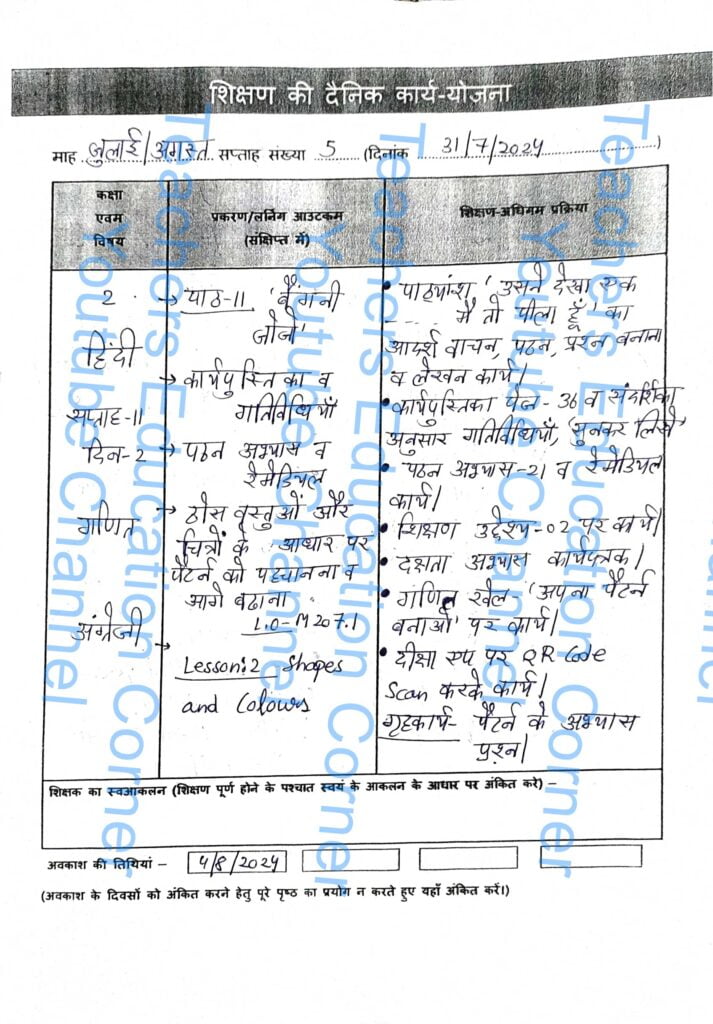 शिक्षण की दैनिक कार्य-योजना
माह जुलाई/अगस्त सप्ताह संख्या 5 (दिनांक 31/7/2024)
कक्षा
एवम
विषय
प्रकरण/लर्निंग आउटकम
(संक्षिप्त में)
शिक्षण-अधिगम प्रक्रिया
2
हिंदी
सप्ताह-11
दिन-2
गणित
अंग्रेजी
→ पाठ-11 'बैंगनी
जोजो'
→ कार्यपुस्तिका व
गतिविधियाँ
→ पठन अभ्यास व
रेमेडियल
→ ठोस वस्तुओं और
चित्रों के आधार पर
पैटर्न को पहचानना व
आगे बढाना
L.O-M207.1
→
Lesson:2 Shapes
and Colours
• पाठ्यांश 'उसने देखा एक
मैं तो पीला हूँ' का
आदर्श वाचन, पठन, प्रश्न बनाना
व लेखन कार्य।
• कार्यपुस्तिका पेज-36 व संदर्शिका
अनुसार गतिविधियाँ, 'सुनकर लिखें'
• पठन अभ्यास-21 व रेमेडियल
कार्य।
• शिक्षण उद्देश्य-02 पर कार्य।
• दक्षता अभ्यास कार्यपत्रक।
• गणित खेल-'अपना पैटर्न
बनाओ' पर कार्य।
• दीक्षा एप पर QR Code
Scan करके कार्य।
गृहकार्य- पैटर्न के अभ्यास
प्रश्न।
शिक्षक का स्वआकलन (शिक्षण पूर्ण होने के पश्चात स्वयं के आकलन के आधार पर अंकित करे) –
अवकाश की तिथियां – 4/8/2024
(अवकाश के दिवसों को अंकित करने हेतु पूरे पृष्ठ का प्रयोग न करते हुए यहाँ अंकित करें।)
Teachers Education Corner
Youtube Channel
Teachers Education Corner
Youtube Channel
Teachers Education Corner
Youtube Channel